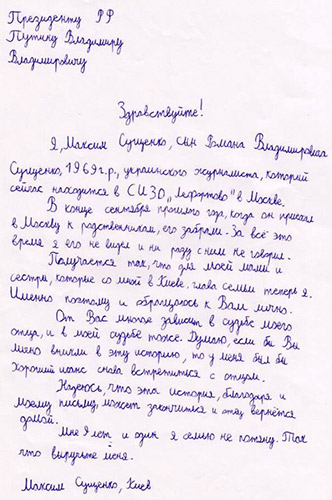 Президенту РФ
Путину Владимиру
Владимировичу
Здравствуйте!
Я, Максим Сущенко, сын Романа Владимировича
Сущенко, 1969 г.р., украинского журналиста, который
сейчас находится в СИЗО „Лефортово" в Москве.
В конце сентября прошлого года, когда он приехал
в Москву к родственникам, его забрали. За всё это
время я его не видел и ни разу с ним не говорил.
Получается так, что для моей мамы и
сестры, которые со мной в Киеве, глава семьи теперь я.
Именно поэтому и обращаюсь к Вам лично.
От Вас многое зависит в судьбе моего
отца, и в моей судьбе тоже. Думаю, если бы Вы
лично вникли в эту историю, то у меня был бы
хороший шанс снова встретиться с отцом.
Надеюсь, что эта история, благодаря и
моему письму, может закончиться и отец вернётся
домой.
Мне 9 лет и один я семью не потяну. Так
что выручите меня.
Максим Сущенко, Киев